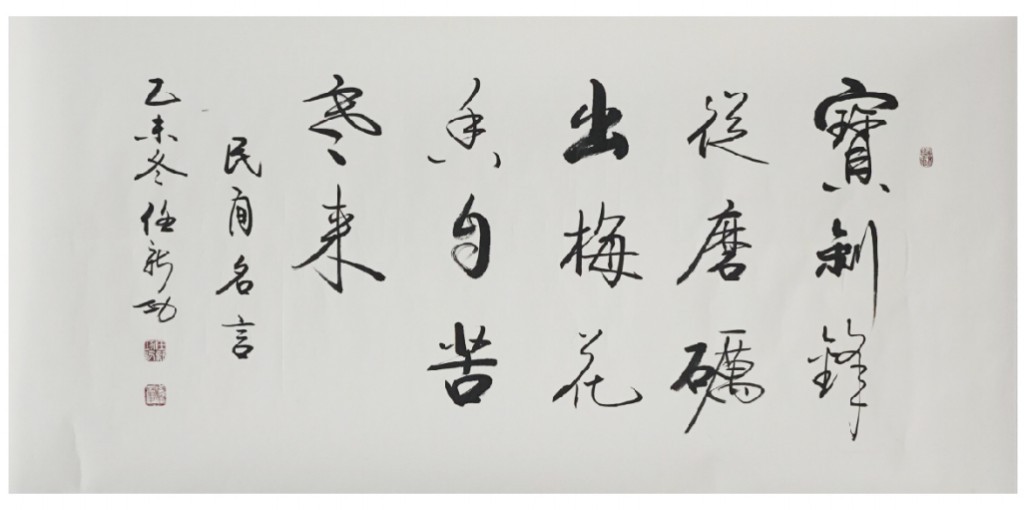 寶劍鋒
從磨礪
出梅花
香自苦
寒来
民间名言
乙未冬任新功